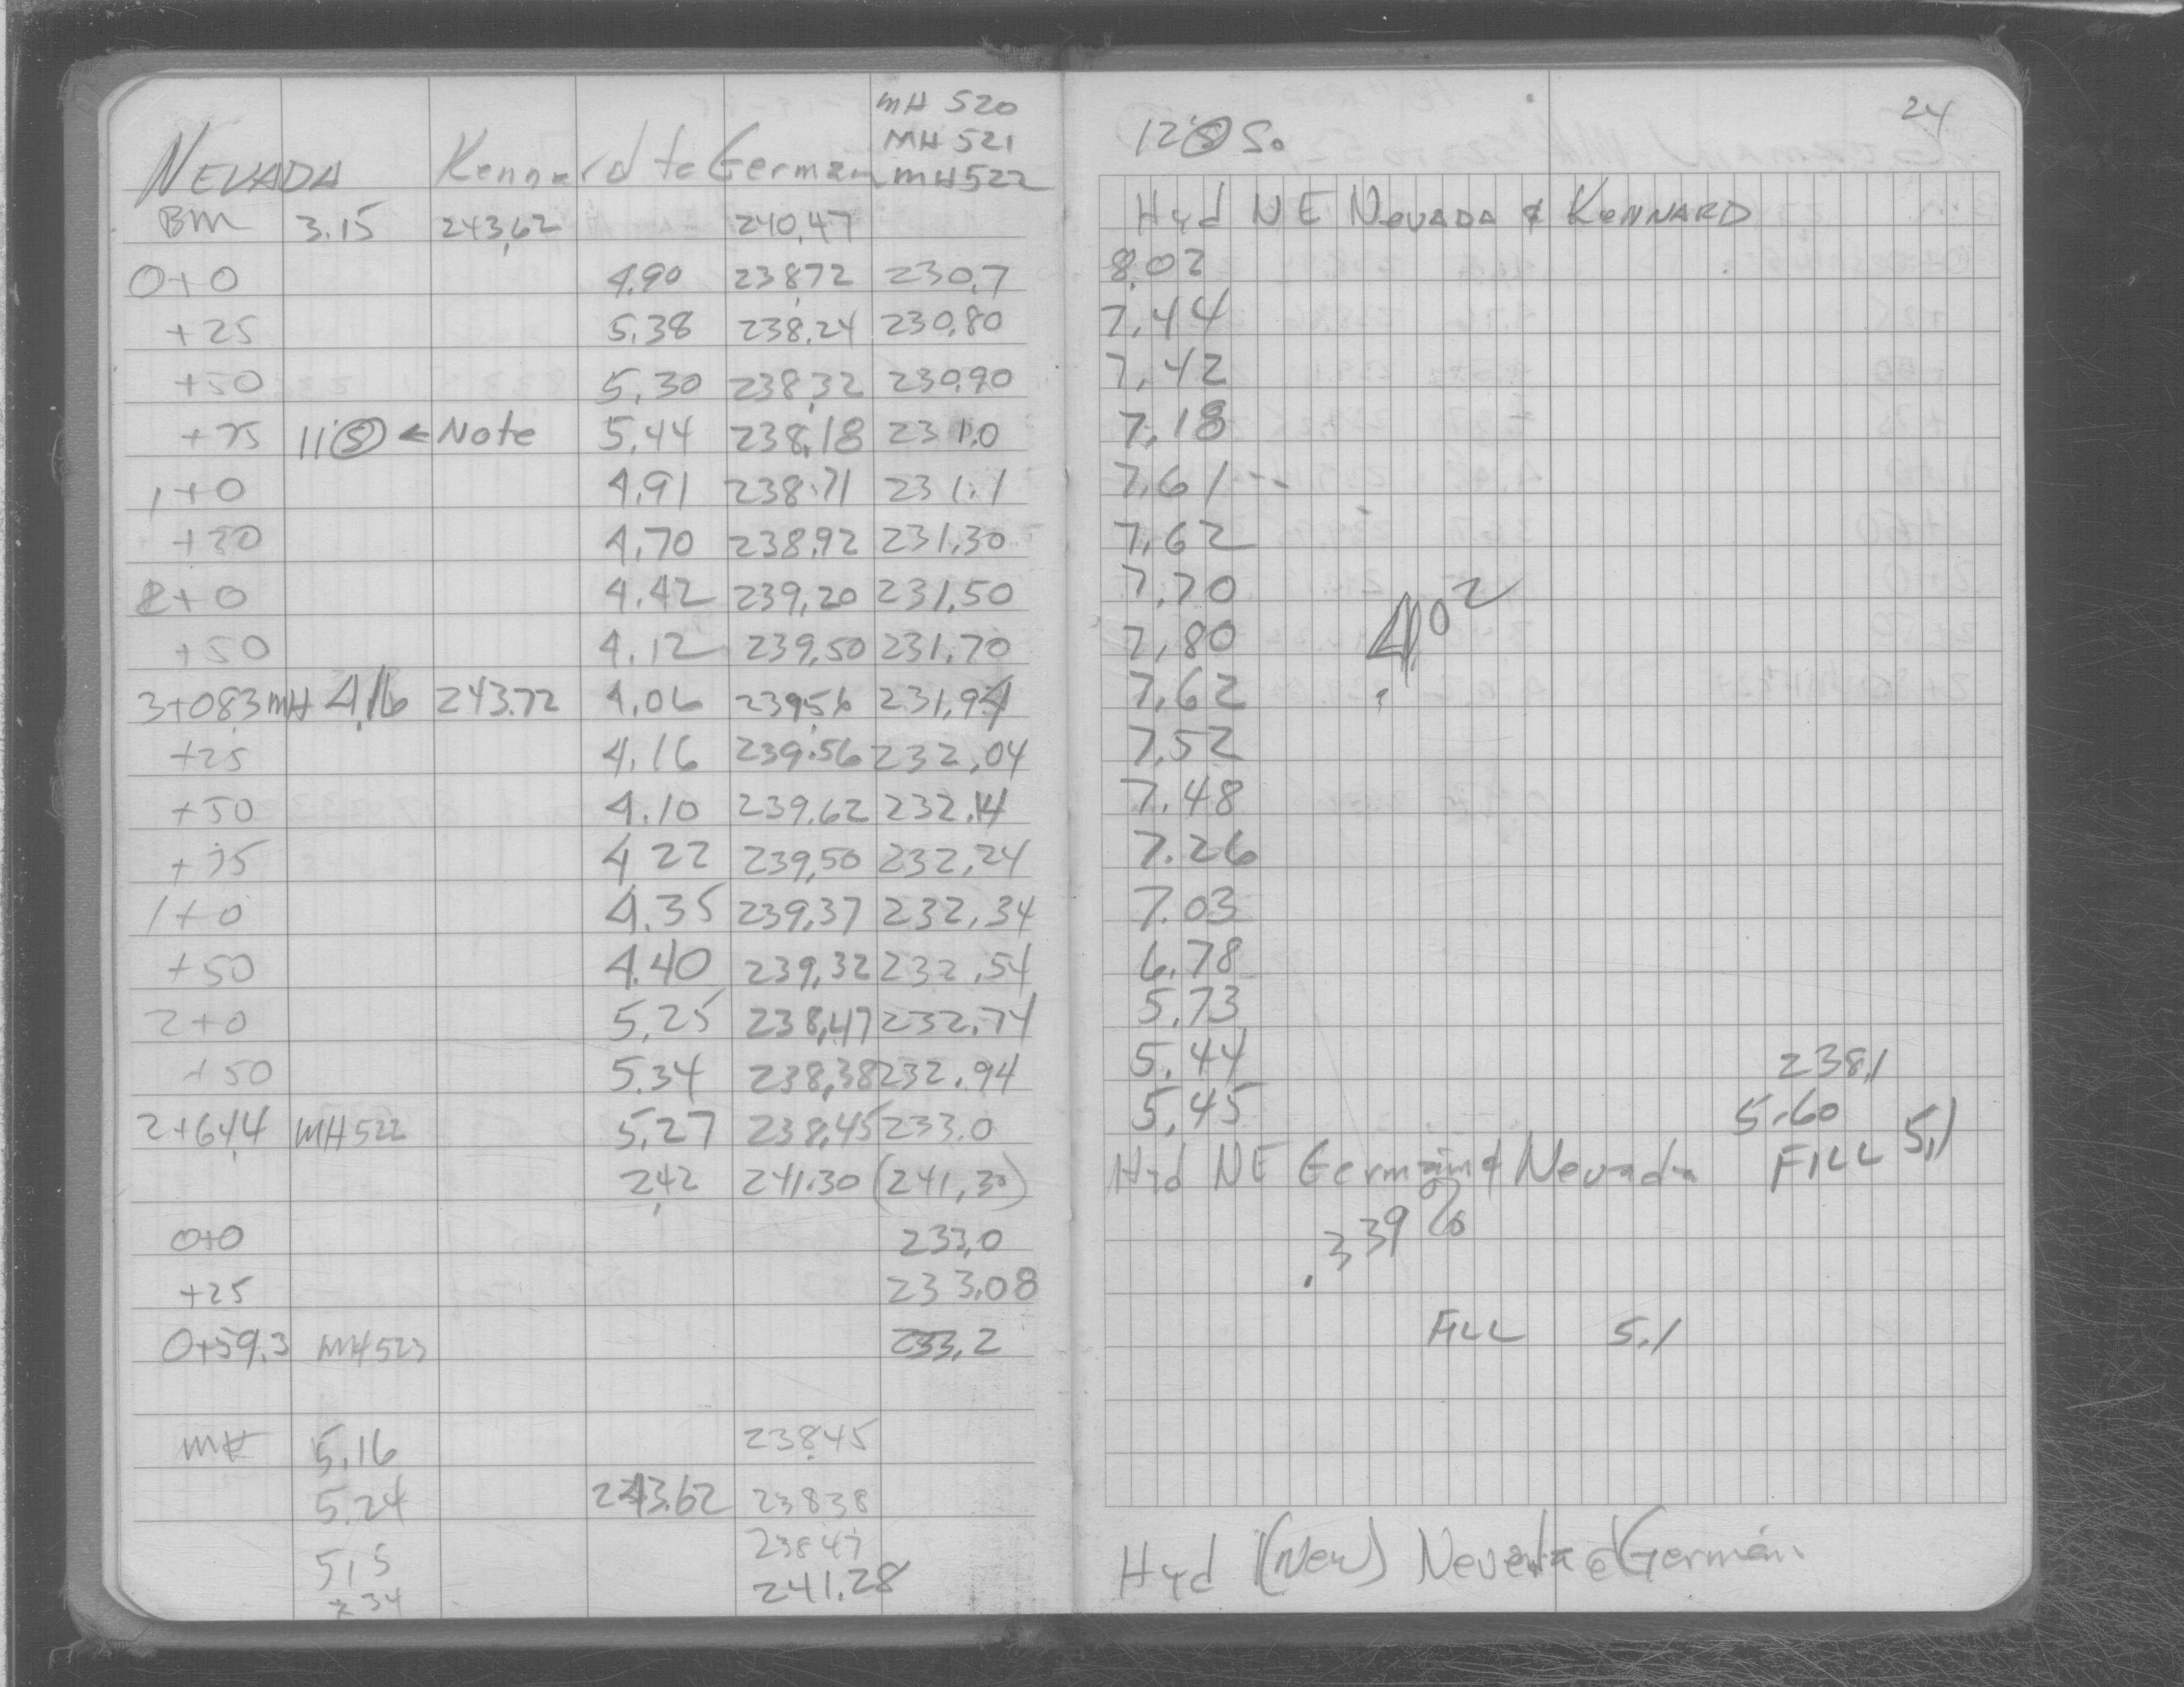 MH 520
MH 521
NEVADA Kennard to German MH 522
BM 3.15 243.62 240.47
0+0 4.90 238.72 230.7
+25 5.38 238.24 230.80
+50 5.30 238.32 230.90
+75 11'(S) ← Note 5.44 238.18 231.0
1+0 4.91 238.71 231.1
+50 4.70 238.92 231.30
2+0 4.42 239.20 231.50
+50 4.12 239.50 231.70
3+08.3 MH 4.16 243.72 4.06 239.56 231.94
+25 4.16 239.56 232.04
+50 4.10 239.62 232.14
+75 4.22 239.50 232.24
1+0 4.35 239.37 232.34
+50 4.40 239.32 232.54
2+0 5.25 238.47 232.74
+50 5.34 238.38 232.94
2+64.4 MH 522 5.27 238.45 233.0
2.42 241.30 (241.30)
0+0 233.0
+25 233.08
0+59.3 MH 523 233.2
MH 5.16 238.45
5.24 243.62 238.38
5.15 238.47
2.34 241.28
24
12'(S) So.
Hyd NE NEVADA & KENNARD
8.02
7.44
7.42
7.18
7.61 --
7.62
7.70
7.80
7.62
7.52
7.48
7.26
7.03
6.78
5.73
5.44 238.1
5.45 5.60 5.1
Hyd NE German & Nevada FILL
.339%
FILL 5.1
Hyd (New) Nevada & German